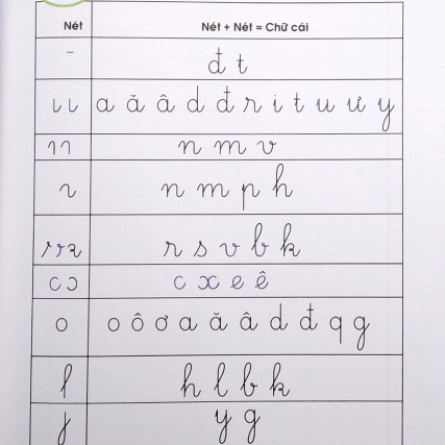 Nét Nét + Nét = Chữ cái
đ t
a ă â d đ r i t u ư y
n m v
n m p h
r s v b k
c x e ê
o o ô ơ a ă â d đ q g
h l b k
y g